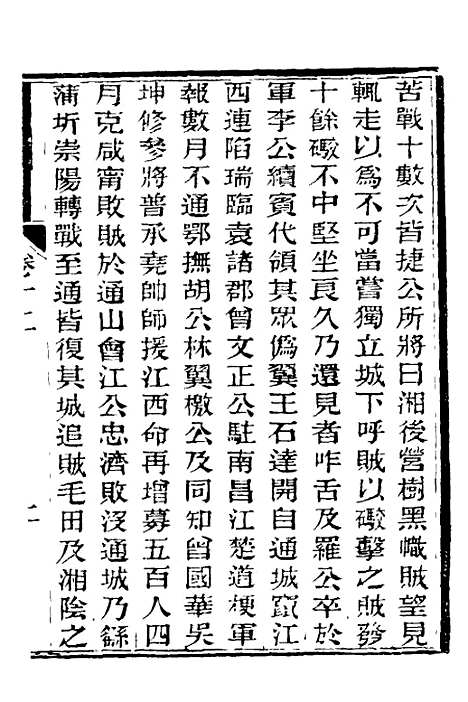 苦戰十數次皆捷公所將曰湘後營樹黑幟賊望見
輒走以爲不可當嘗獨立城下呼賊以礮擊之賊發
十餘礮不中堅坐良久乃還見者咋舌及羅公卒於
軍李公續賓代領其眾僞翼王石達開自通城竄江
西連陷瑞臨袁諸郡曾文正公駐南昌江楚道梗軍
報數月不通鄂撫胡公林翼檄公及同知曾國華吳
坤修參將普承堯帥師援江西命再增募五百人四
月克咸甯敗賊於通山會江公忠濟敗沒通城乃繇
蒲圻崇陽轉戰至通皆復其城追賊毛田及湘陰之
卷十二
二